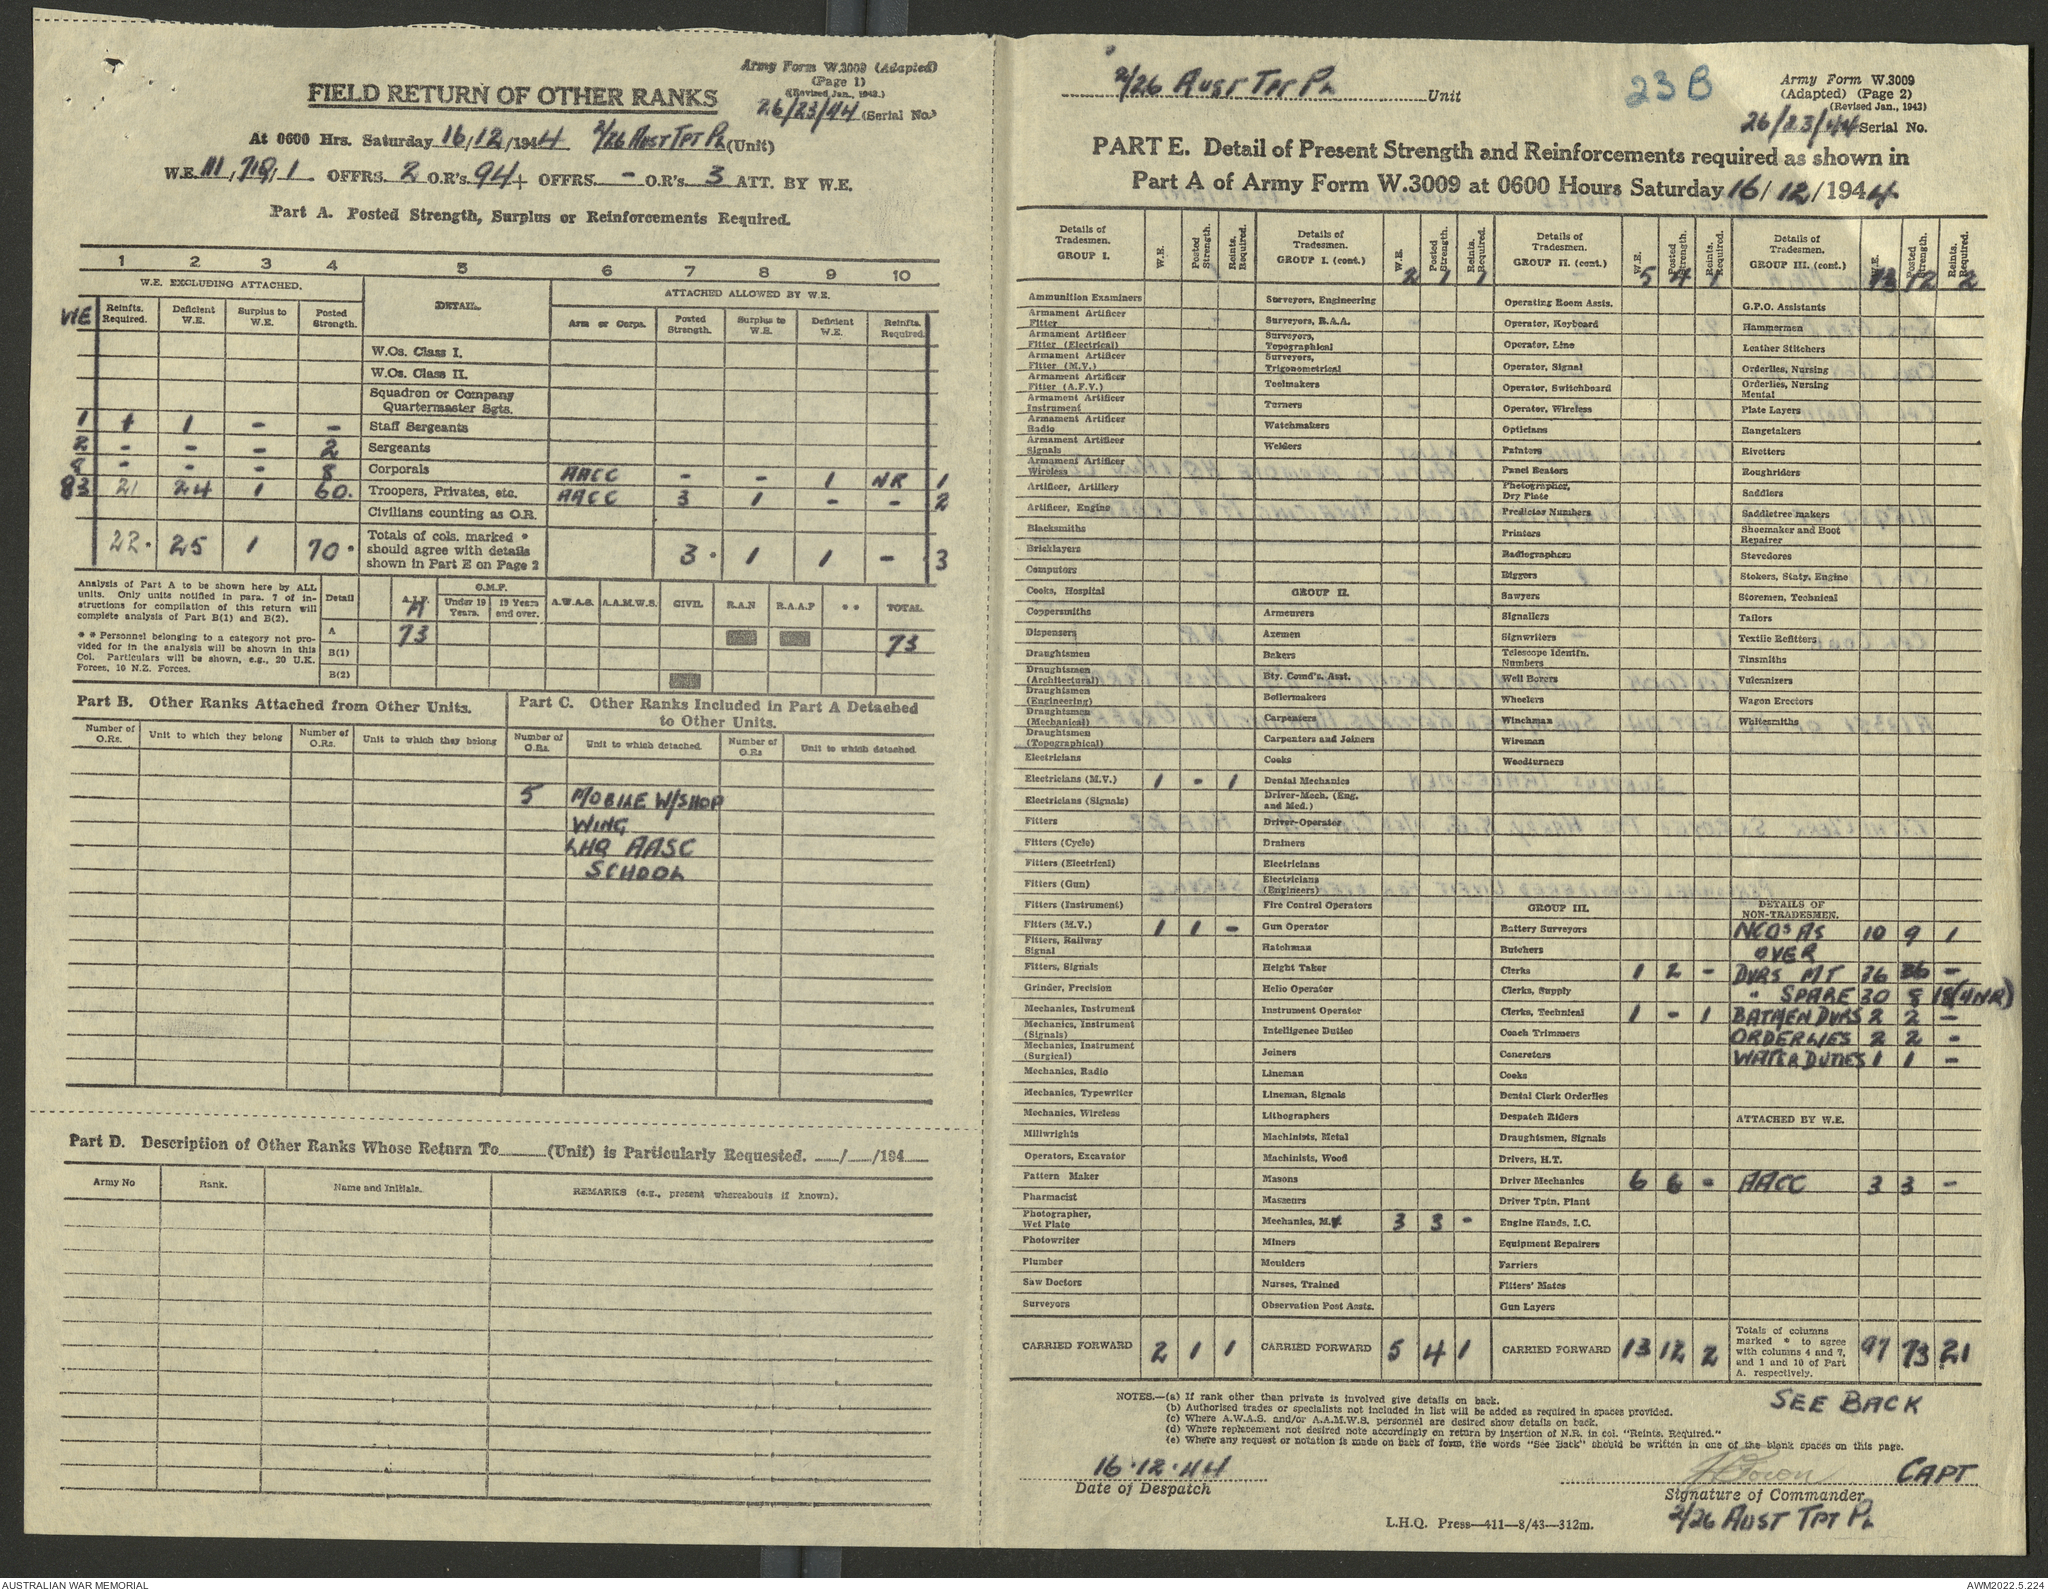 Army Form W.3009 (Adapted)
(Page 1)
(Revised Jan., 1943.)
FIELD RETURN OF OTHER RANKS
26/23/44 (Serial No.)
At 0600 Hrs. Saturday 16/12/1944 2/26 AUST TPT PL (Unit)
W.E. III, 718, 1 OFFRS. 2 O.R's. 94 + OFFRS. - O.R's. 3 ATT. BY W.E.
Part A. Posted Strength, Surplus or Reinforcements Required.
1 2 3 4 5 6 7 8 9 10
W.E. EXCLUDING ATTACHED. DETAIL. ATTACHED ALLOWED BY W.E.
WE Reinfts. Required. Deficient W.E. Surplus to W.E. Posted Strength. Arm or Corps. Posted Strength. Surplus to W.E. Deficient W.E. Reinfts. Required.
W.Os. Class I.
W.Os. Class II.
Squadron or Company
Quartermaster Sgts.
1 1 1 - - Staff Sergeants
2 - - - 2 Sergeants
8 - - - 8 Corporals AACC - - 1 NR 1
83 21 24 1 60. Troopers, Privates, etc. AACC 3 1 - - 2
Civilians counting as O.R.
22 * 25 1 70 * Totals of cols. marked * should agree with details shown in Part E on Page 2 3 * 1 1 - 3
Analysis of Part A to be shown here by ALL units. Only units notified in para. 7 of instructions for compilation of this return will complete analysis of Part B(1) and B(2).
* * Personnel belonging to a category not provided for in the analysis will be shown in this Col. Particulars will be shown, e.g., 20 U.K. Forces, 10 N.Z. Forces.
Detail A.I.F. C.M.F. Under 19 Years. 19 Years and over. A.W.A.S. A.A.M.W.S. CIVIL R.A.N R.A.A.F * * TOTAL
A 73 73
B(1)
B(2)
Part B. Other Ranks Attached from Other Units.
Number of O.Rs. Unit to which they belong Number of O.Rs. Unit to which they belong
Part C. Other Ranks Included in Part A Detached
to Other Units.
Number of O.Rs. Unit to which detached. Number of O.Rs. Unit to which detached.
5 MOBILE W/SHOP
WING
LHQ AASC
SCHOOL
Part D. Description of Other Ranks Whose Return To (Unit) is Particularly Requested. / /194
Army No Rank. Name and Initials. REMARKS (e.g., present whereabouts if known).
2/26 AUST TPT PL Unit
23B
Army Form W.3009
(Adapted) (Page 2)
(Revised Jan., 1943)
26/23/44 Serial No.
PART E. Detail of Present Strength and Reinforcements required as shown in
Part A of Army Form W.3009 at 0600 Hours Saturday 16/12/1944
Details of Tradesmen. GROUP I. W.E. Posted Strength. Reinfts. Required.
Ammunition Examiners
Armament Artificer Fitter
Armament Artificer Fitter (Electrical)
Armament Artificer Fitter (M.V.)
Armament Artificer Fitter (A.F.V.)
Armament Artificer Instrument
Armament Artificer Radio
Armament Artificer Signals
Armament Artificer Wireless
Artificer, Artillery
Artificer, Engine
Blacksmiths
Bricklayers
Computors
Cooks, Hospital
Coppersmiths
Dispensers
Draughtsmen
Draughtsmen (Architectural)
Draughtsmen (Engineering)
Draughtsmen (Mechanical)
Draughtsmen (Topographical)
Electricians
Electricians (M.V.) 1 - 1
Electricians (Signals)
Fitters
Fitters (Cycle)
Fitters (Electrical)
Fitters (Gun)
Fitters (Instrument)
Fitters (M.V.) 1 1 -
Fitters, Railway Signal
Fitters, Signals
Grinder, Precision
Mechanics, Instrument
Mechanics, Instrument (Signals)
Mechanics, Instrument (Surgical)
Mechanics, Radio
Mechanics, Typewriter
Mechanics, Wireless
Millwrights
Operators, Excavator
Pattern Maker
Pharmacist
Photographer, Wet Plate
Photowriter
Plumber
Saw Doctors
Surveyors
CARRIED FORWARD 2 1 1
Details of Tradesmen. GROUP I. (cont.) W.E. Posted Strength. Reinfts. Required.
2 1 1
Surveyors, Engineering
Surveyors, R.A.A.
Surveyors, Topographical
Surveyors, Trigonometrical
Toolmakers
Turners
Watchmakers
Welders
GROUP II.
Armourers
Axemen
Bakers
Bty. Comd's. Asst.
Boilermakers
Carpenters
Carpenters and Joiners
Cooks
Dental Mechanics
Driver-Mech. (Eng. and Med.)
Driver-Operator
Drainers
Electricians
Electricians (Engineers)
Fire Control Operators
Gun Operator
Hatchman
Height Taker
Helio Operator
Instrument Operator
Intelligence Duties
Joiners
Lineman
Lineman, Signals
Lithographers
Machinists, Metal
Machinists, Wood
Masons
Masseurs
Mechanics, M.V. 3 3 -
Miners
Moulders
Nurses, Trained
Observation Post Assts.
CARRIED FORWARD 5 4 1
Details of Tradesmen. GROUP II. (cont.) W.E. Posted Strength. Reinfts. Required.
5 4 1
Operating Room Assts.
Operator, Keyboard
Operator, Line
Operator, Signal
Operator, Switchboard
Operator, Wireless
Opticians
Painters
Panel Beaters
Photographer, Dry Plate
Predictor Numbers
Printers
Radiographers
Riggers
Sawyers
Signallers
Signwriters
Telescope Identfn. Numbers
Well Borers
Wheelers
Winchman
Wireman
Woodturners
GROUP III.
Battery Surveyors
Butchers
Clerks 1 2 -
Clerks, Supply
Clerks, Technical 1 - 1
Coach Trimmers
Concretors
Cooks
Dental Clerk Orderlies
Despatch Riders
Draughtsmen, Signals
Drivers, H.T.
Driver Mechanics 6 6 -
Driver Tptn. Plant
Engine Hands, I.C.
Equipment Repairers
Farriers
Fitters' Mates
Gun Layers
CARRIED FORWARD 13 12 2
Details of Tradesmen. GROUP III. (cont.) W.E. Posted Strength. Reinfts. Required.
13 12 2
G.P.O. Assistants
Hammermen
Leather Stitchers
Orderlies, Nursing
Orderlies, Nursing Mental
Plate Layers
Rangetakers
Rivetters
Roughriders
Saddlers
Saddletree makers
Shoemaker and Boot Repairer
Stevedores
Stokers, Staty. Engine
Storemen, Technical
Tailors
Textile Refitters
Tinsmiths
Vulcanizers
Wagon Erectors
Whitesmiths
DETAILS OF NON-TRADESMEN.
NCOs AS 10 9 1
OVER
DVRS MT 36 36 -
" SPARE 30 8 18 (4NR)
BATMEN DVRS 2 2 -
ORDERLIES 2 2 -
WATER DUTIES 1 1 -
ATTACHED BY W.E.
AACC 3 3 -
Totals of columns marked * to agree with columns 4 and 7, and 1 and 10 of Part A. respectively. 97 73 * 21
NOTES.—(a) If rank other than private is involved give details on back.
(b) Authorised trades or specialists not included in list will be added as required in spaces provided.
(c) Where A.W.A.S. and/or A.A.M.W.S. personnel are desired show details on back.
(d) Where replacement not desired note accordingly on return by insertion of N.R. in col. "Reinfts. Required."
(e) Where any request or notation is made on back of form, the words "See Back" should be written in one of the blank spaces on this page.
SEE BACK
16.12.44
Date of Despatch
CAPT
Signature of Commander
2/26 AUST TPT PL
L.H.Q. Press—411—8/43—312m.
AUSTRALIAN WAR MEMORIAL
AWM2022.5.224